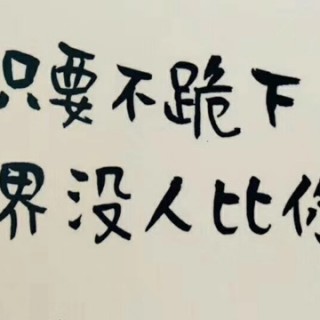 只要不跪下
界没人比你